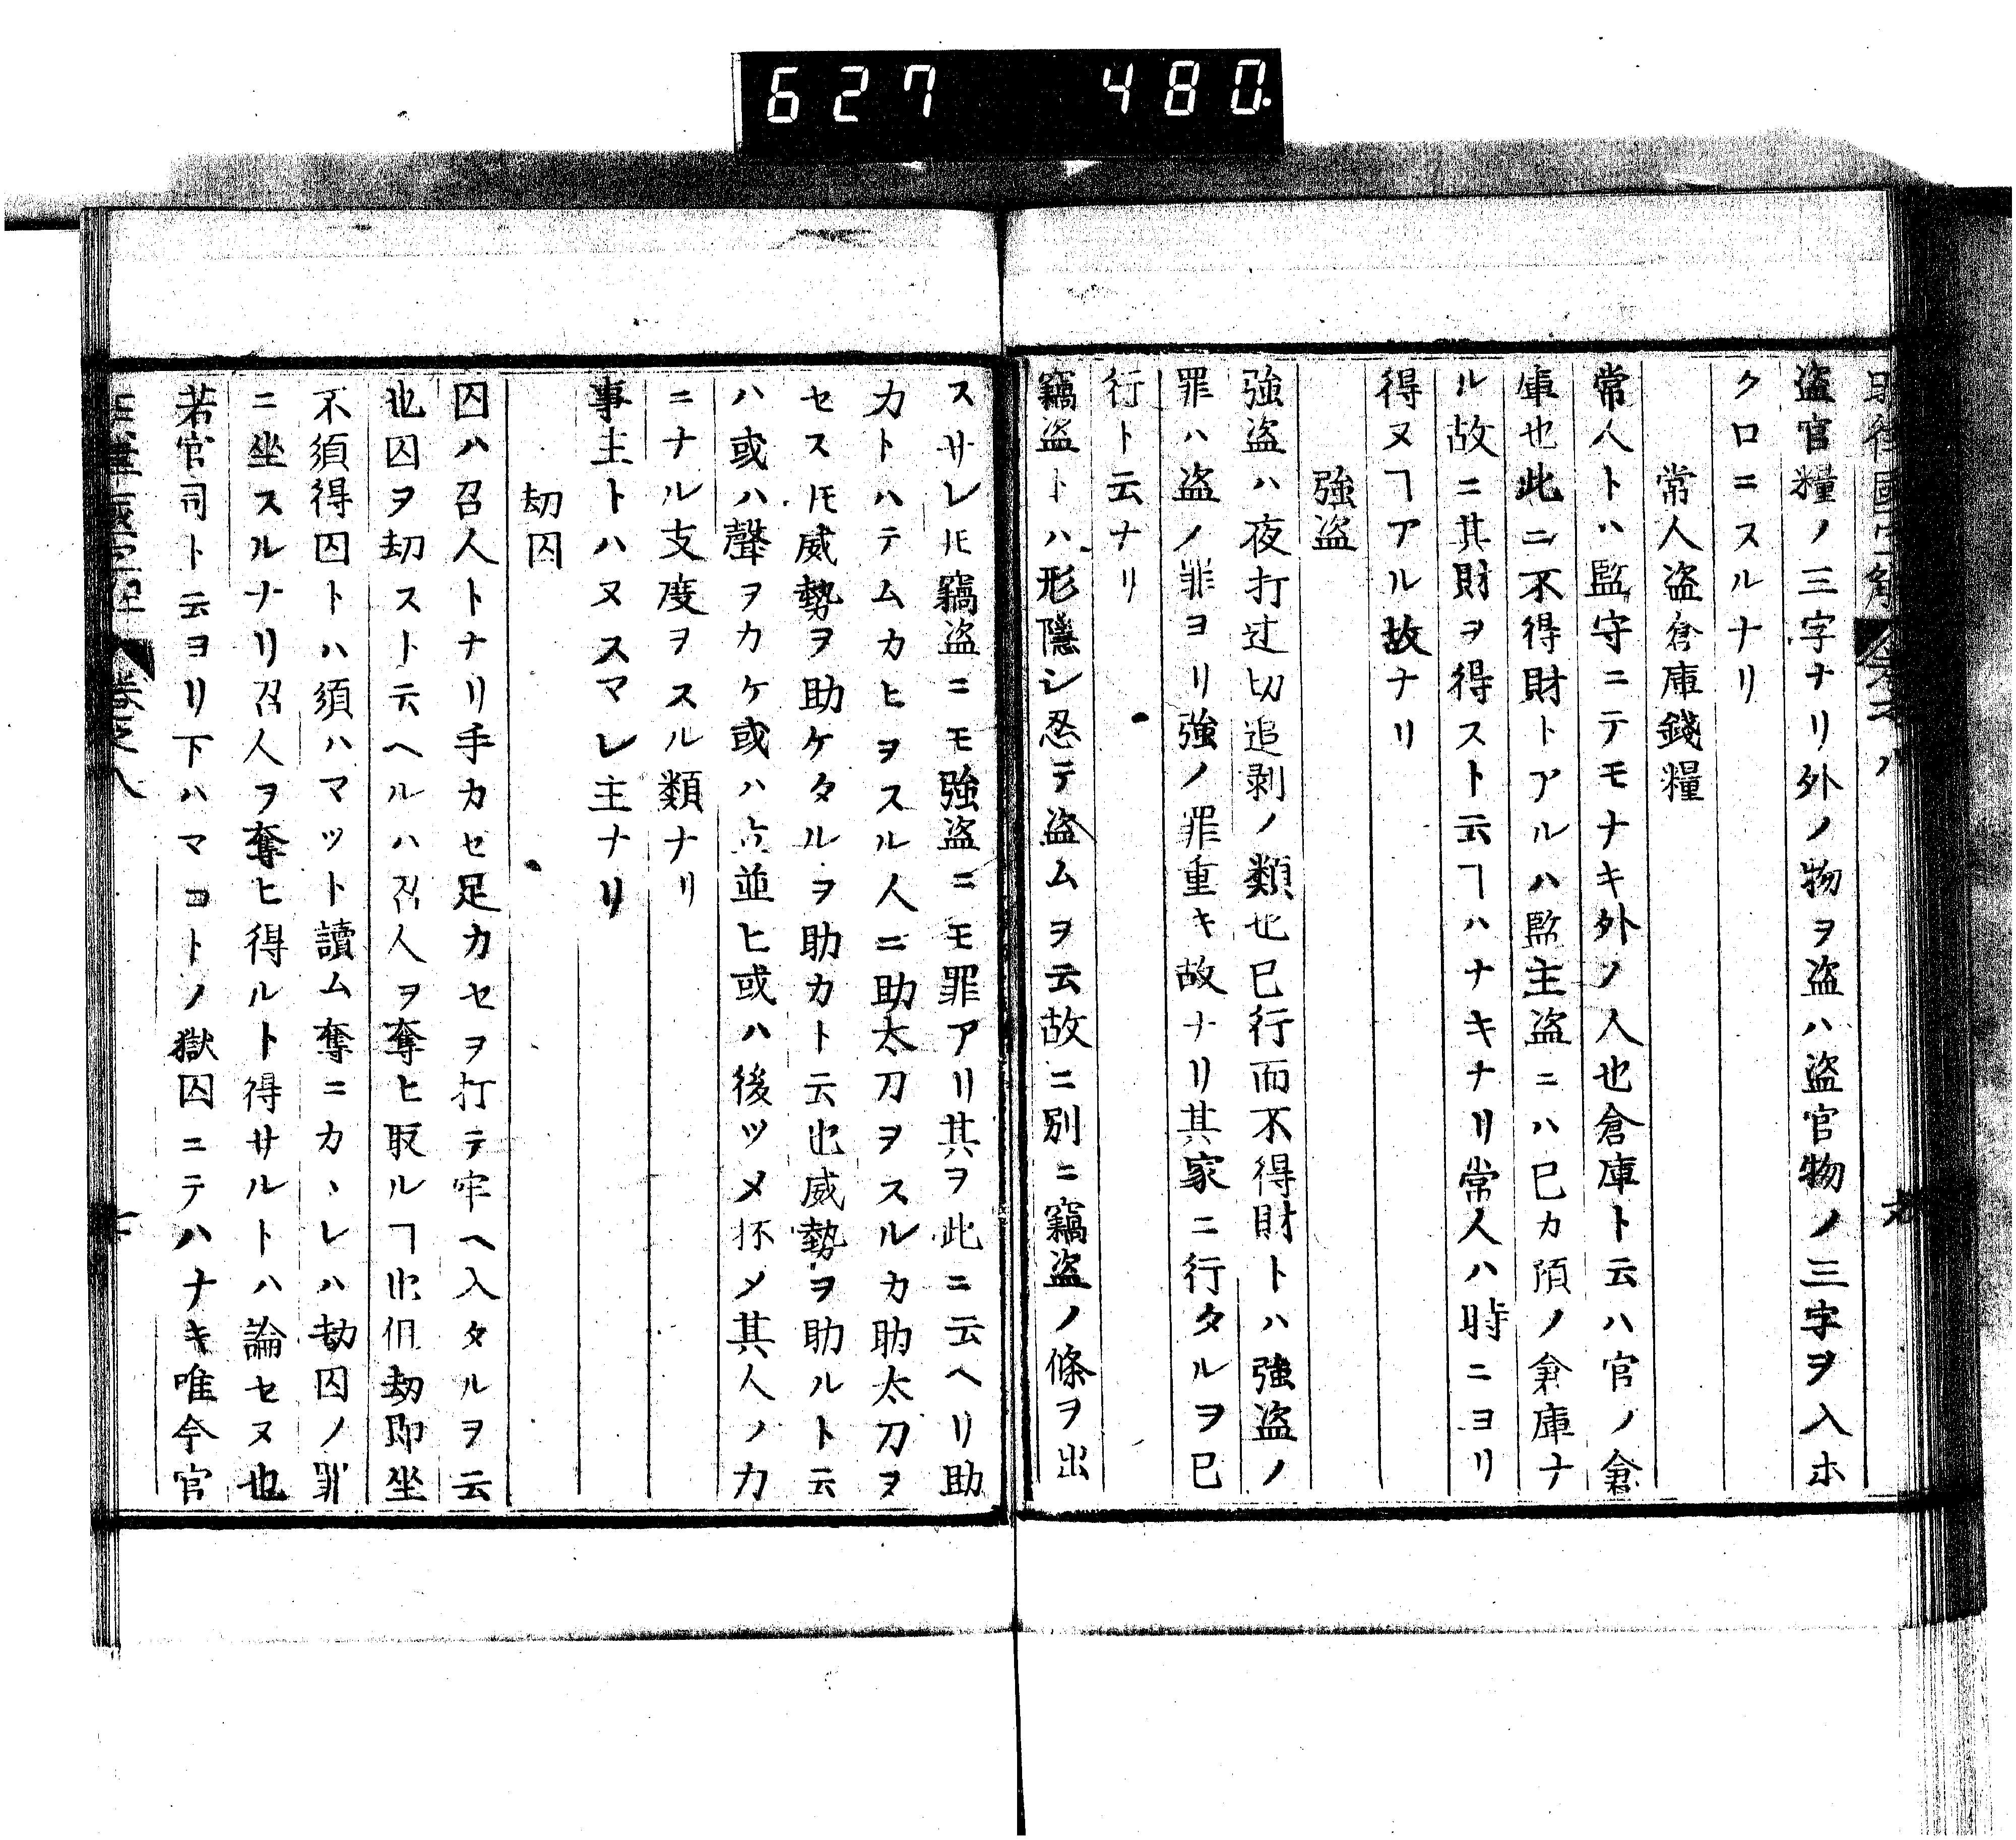 627 480
盗官糧ノ三字ナリ外ノ物ヲ盗ハ盗官物ノ三字ヲ入ホ
クロニスルナリ
常人盗倉庫錢糧
常人トハ監守ニテモナキ外ノ人也倉庫ト云ハ官ノ倉
庫也此ニ不得財トアルハ監主盗ニハ已カ預ノ倉庫ナ
ル故ニ其財ヲ得スト云ヿハナキナリ常人ハ時ニヨリ
得ヌヿアル故ナリ
強盗
強盗ハ夜打辻切追剥ノ類也已行而不得財トハ強盗ノ
罪ハ盗ノ罪ヨリ強ノ罪重キ故ナリ其家ニ行タルヲ已
行ト云ナリ
竊盗トハ形隱シ忍テ盗ムヲ云故ニ別ニ竊盗ノ條ヲ出
スサレ𪜈竊盗ニモ強盗ニモ罪アリ其ヲ此ニ云ヘリ助
力トハテムカヒヲスル人ニ助太刀ヲスルカ助太刀ヲ
セス𪜈威勢ヲ助ケタルヲ助カト云也威勢ヲ助ルト云
ハ或ハ聲ヲカケ或ハ立並ヒ或ハ後ツメ抔メ其人ノ力
ニナル支度ヲスル類ナリ
事主トハヌスマレ主ナリ
劫囚
囚ハ召人トナリ手カセ足カセヲ打テ牢ヘ入タルヲ云
也囚ヲ劫ストテヘルハ召人ヲ奪ヒ取ルヿ也但劫即坐
不須得囚トハ須ハマツト讀ム奪ニカヽレハ劫囚ノ罪
ニ坐スルナリ召人ヲ奪ヒ得ルト得サルトハ論セヌ也
若官司ト云ヨリ下ハマコトノ獄囚ニテハナキ唯今官
卷之八